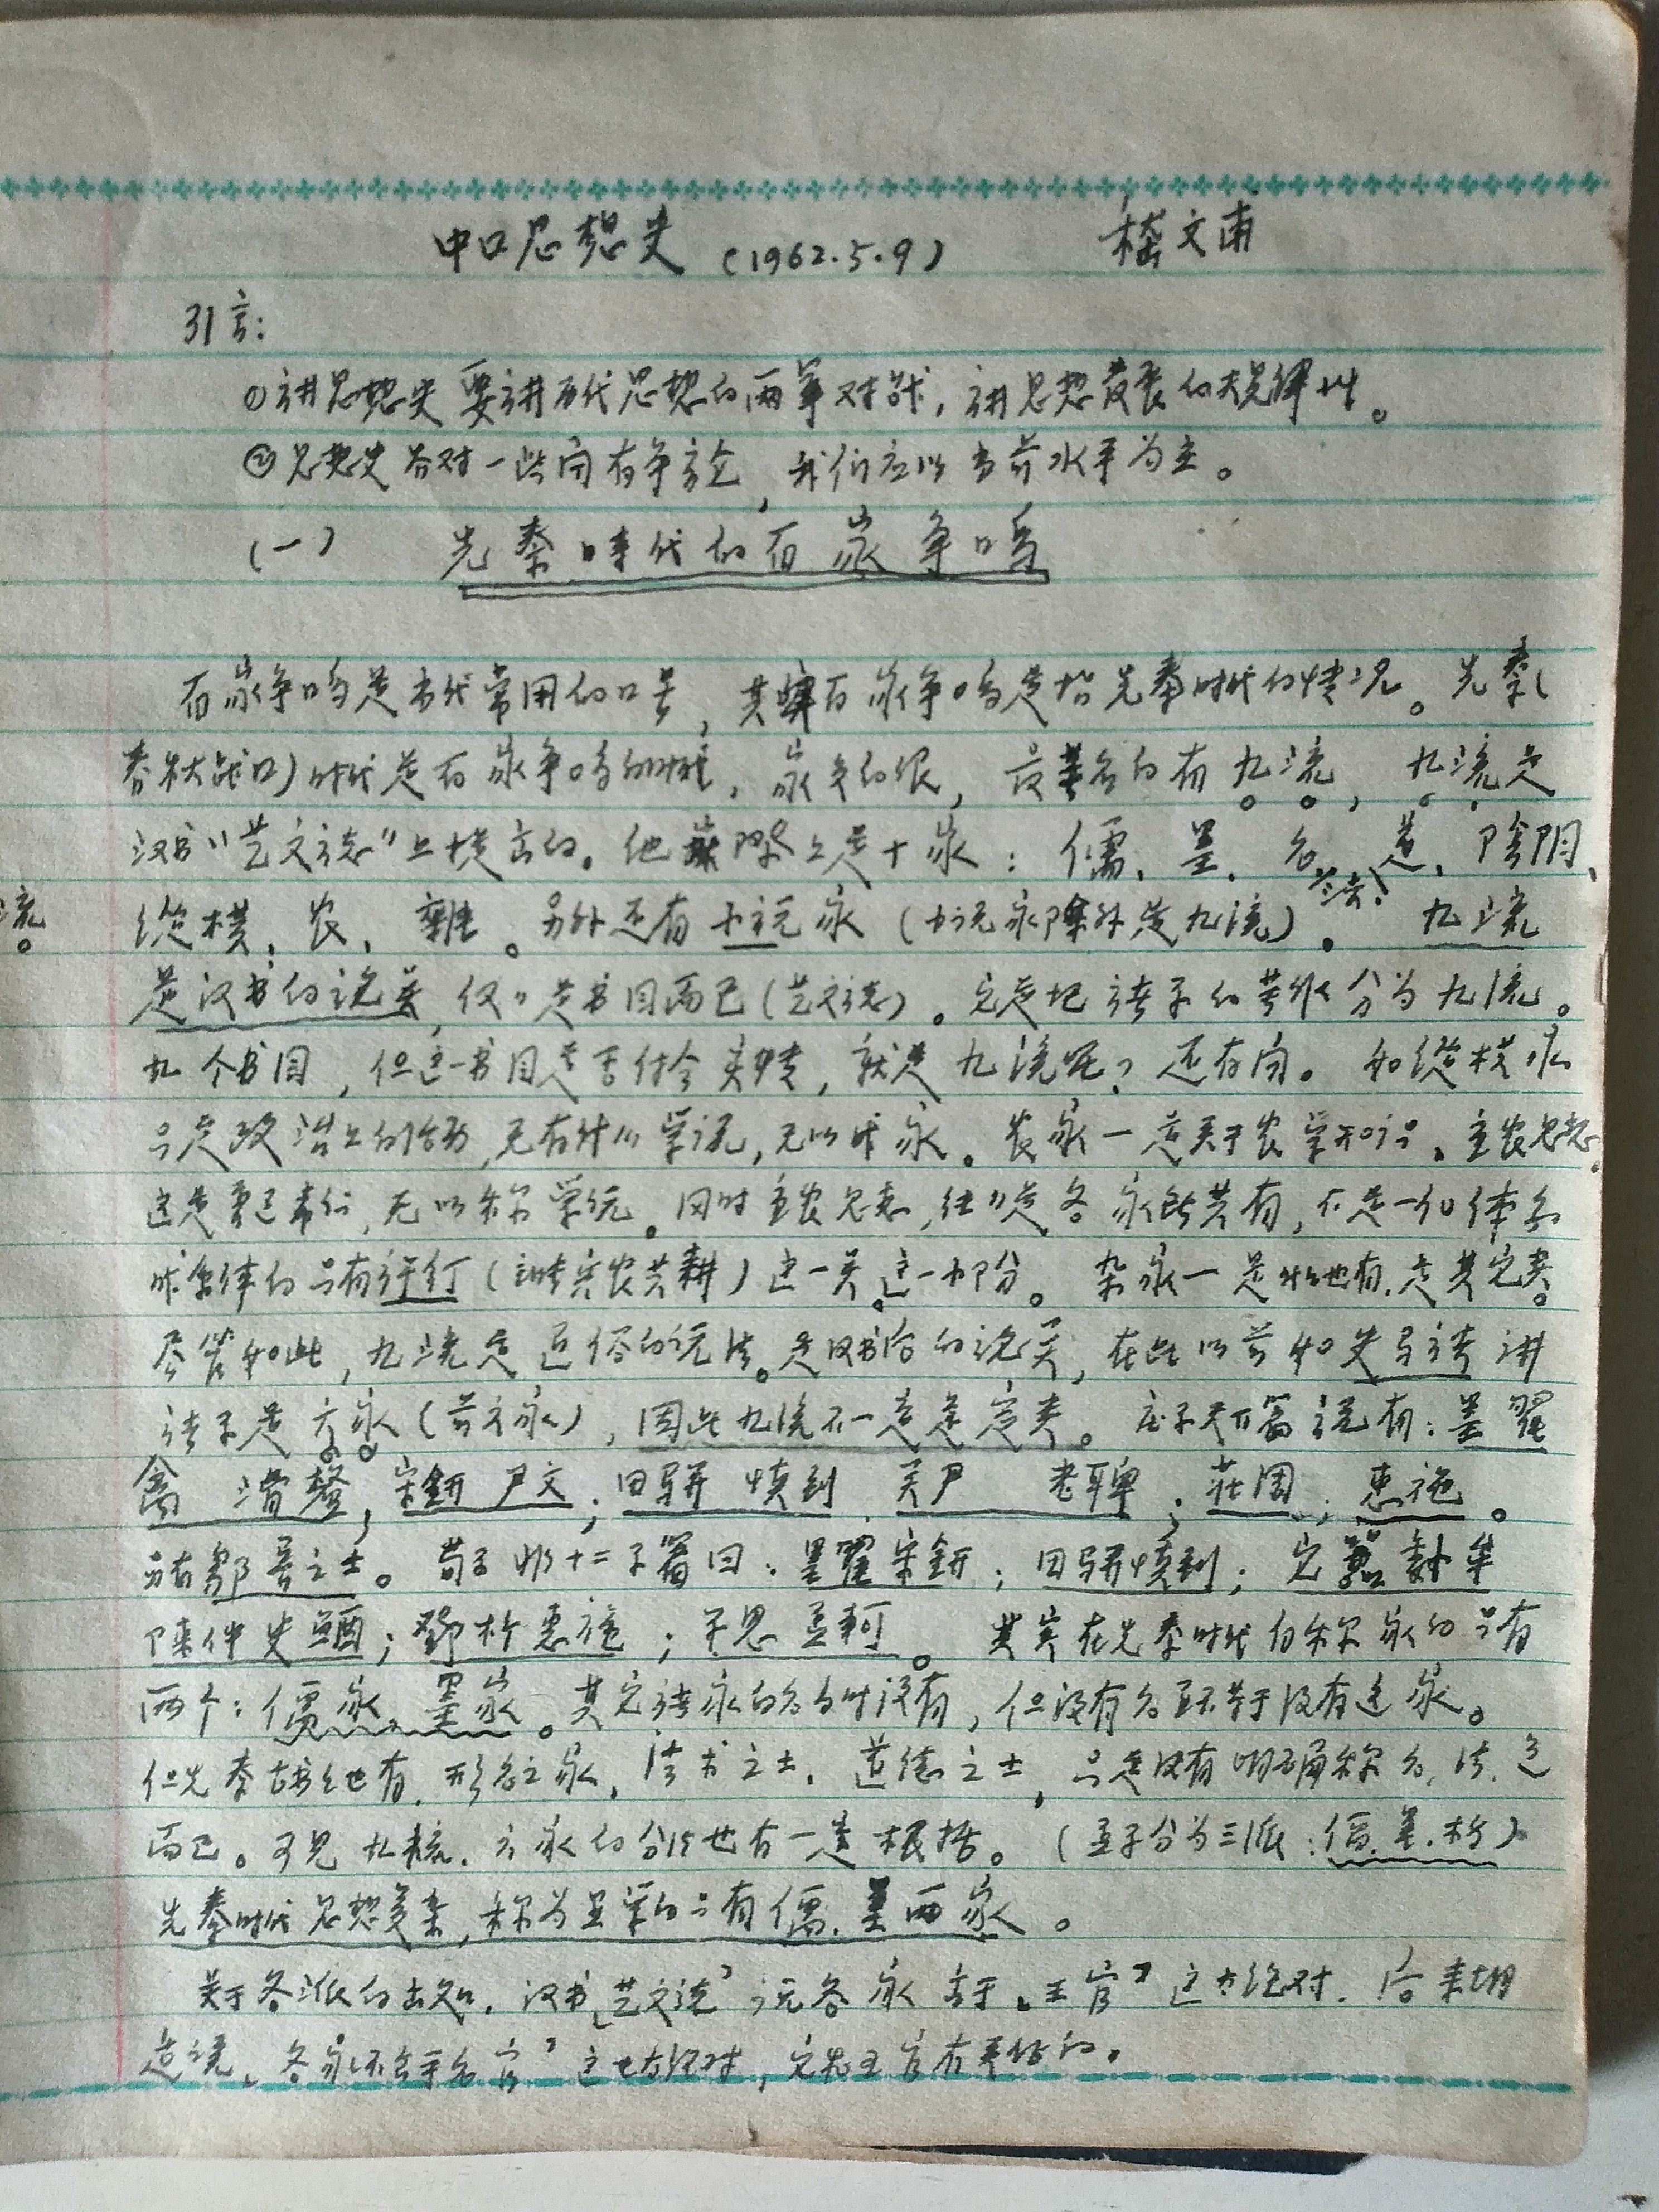 中口思想史 (1962.5.9) 嵇文甫
引言:
①讲思想史要讲历代思想的两军对战，讲思想发展的规律性。
②思想史各对一些问有争论，我们应以当前水平为主。
(一) 先秦時代的百家争鸣
百家争鸣是当代常用的口号，其实百家争鸣是指先秦时代的情况。先秦(
春秋战口)时代是百家争鸣的时代，家多的很，最著名的有九流，九流是
汉书"艺文志"上提出的。他实际上是十家：儒、墨、名、法、道、陰阴、
纵横、农、雜。另外还有小说家（小说家除外是九流）。九流
流。
是汉书的说法，仅〃是书目而已(艺文志)。它是把诸子的著作分为九流。
九个书目，但这一书目是否付合实情，就是九流呢？还有问。如纵横家
只是政治上的活动，无有什么学说，无以成家。农家一是关于农学知识、重农思想
这是 ，无以称学说。同时重农思想，往〃是各家所共有，不是一个体系
成系体的只有许行(主张君农共耕)这一类这一部分。杂家一是什么也有，是其它类。
尽管如此，九流是通俗的说法。是汉书后的说法，在此以前如史马谈讲
诸子是六家(前六家)，因此九流不一定是定类。庄子天下篇说有：墨翟
禽滑釐，宋鈃尹文；田骈慎到 关尹 老聃；莊周；惠施。
另有鄒魯之士。荀子非十二子篇曰：墨翟宋鈃；田骈慎到；它嚣魏牟
陳仲史鰌；鄧析惠施；子思孟軻。其实在先秦时代的称家的只有
两个：儒家、墨家。其它诸家的名当时没有，但没有名并不等于没有这家。
但先秦古书上也有，形名之家，法术之士，道德之士，只是没有明确称名、法、道
而已。可见九流、六家的分法也有一定根据。(孟子分为三派：儒.墨.杨)
先秦时代思想复杂，称为显学的只有儒.墨两家。
关于各派的出处，汉书"艺文志"说各家"出于王官"这太绝对，后来胡
适说"各家不出于王官"这也太绝对，它和王官有关係的。